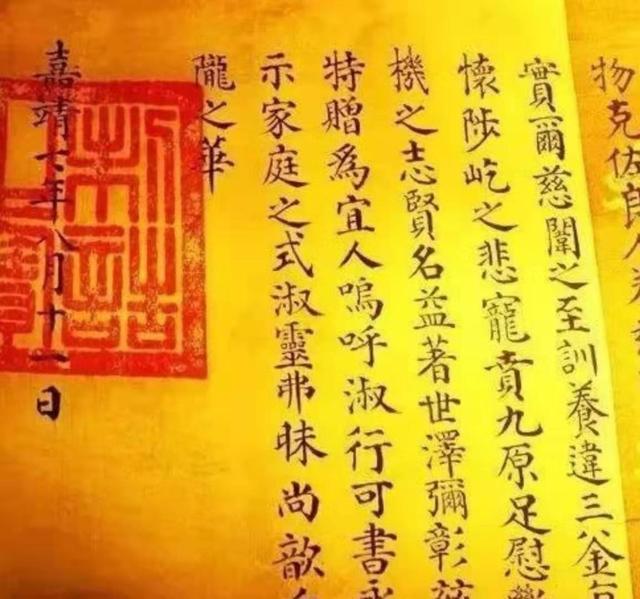 物克佐郎人
實爾慈闈之至訓養違三釜每
懷陟屺之悲寵賁九原足慰
機之志賢名益著世澤彌彰茲
特贈爲宜人嗚呼淑行可書永
示家庭之式淑靈弗昧尚歆
隴之華
嘉靖七年八月十一日
制誥之寶